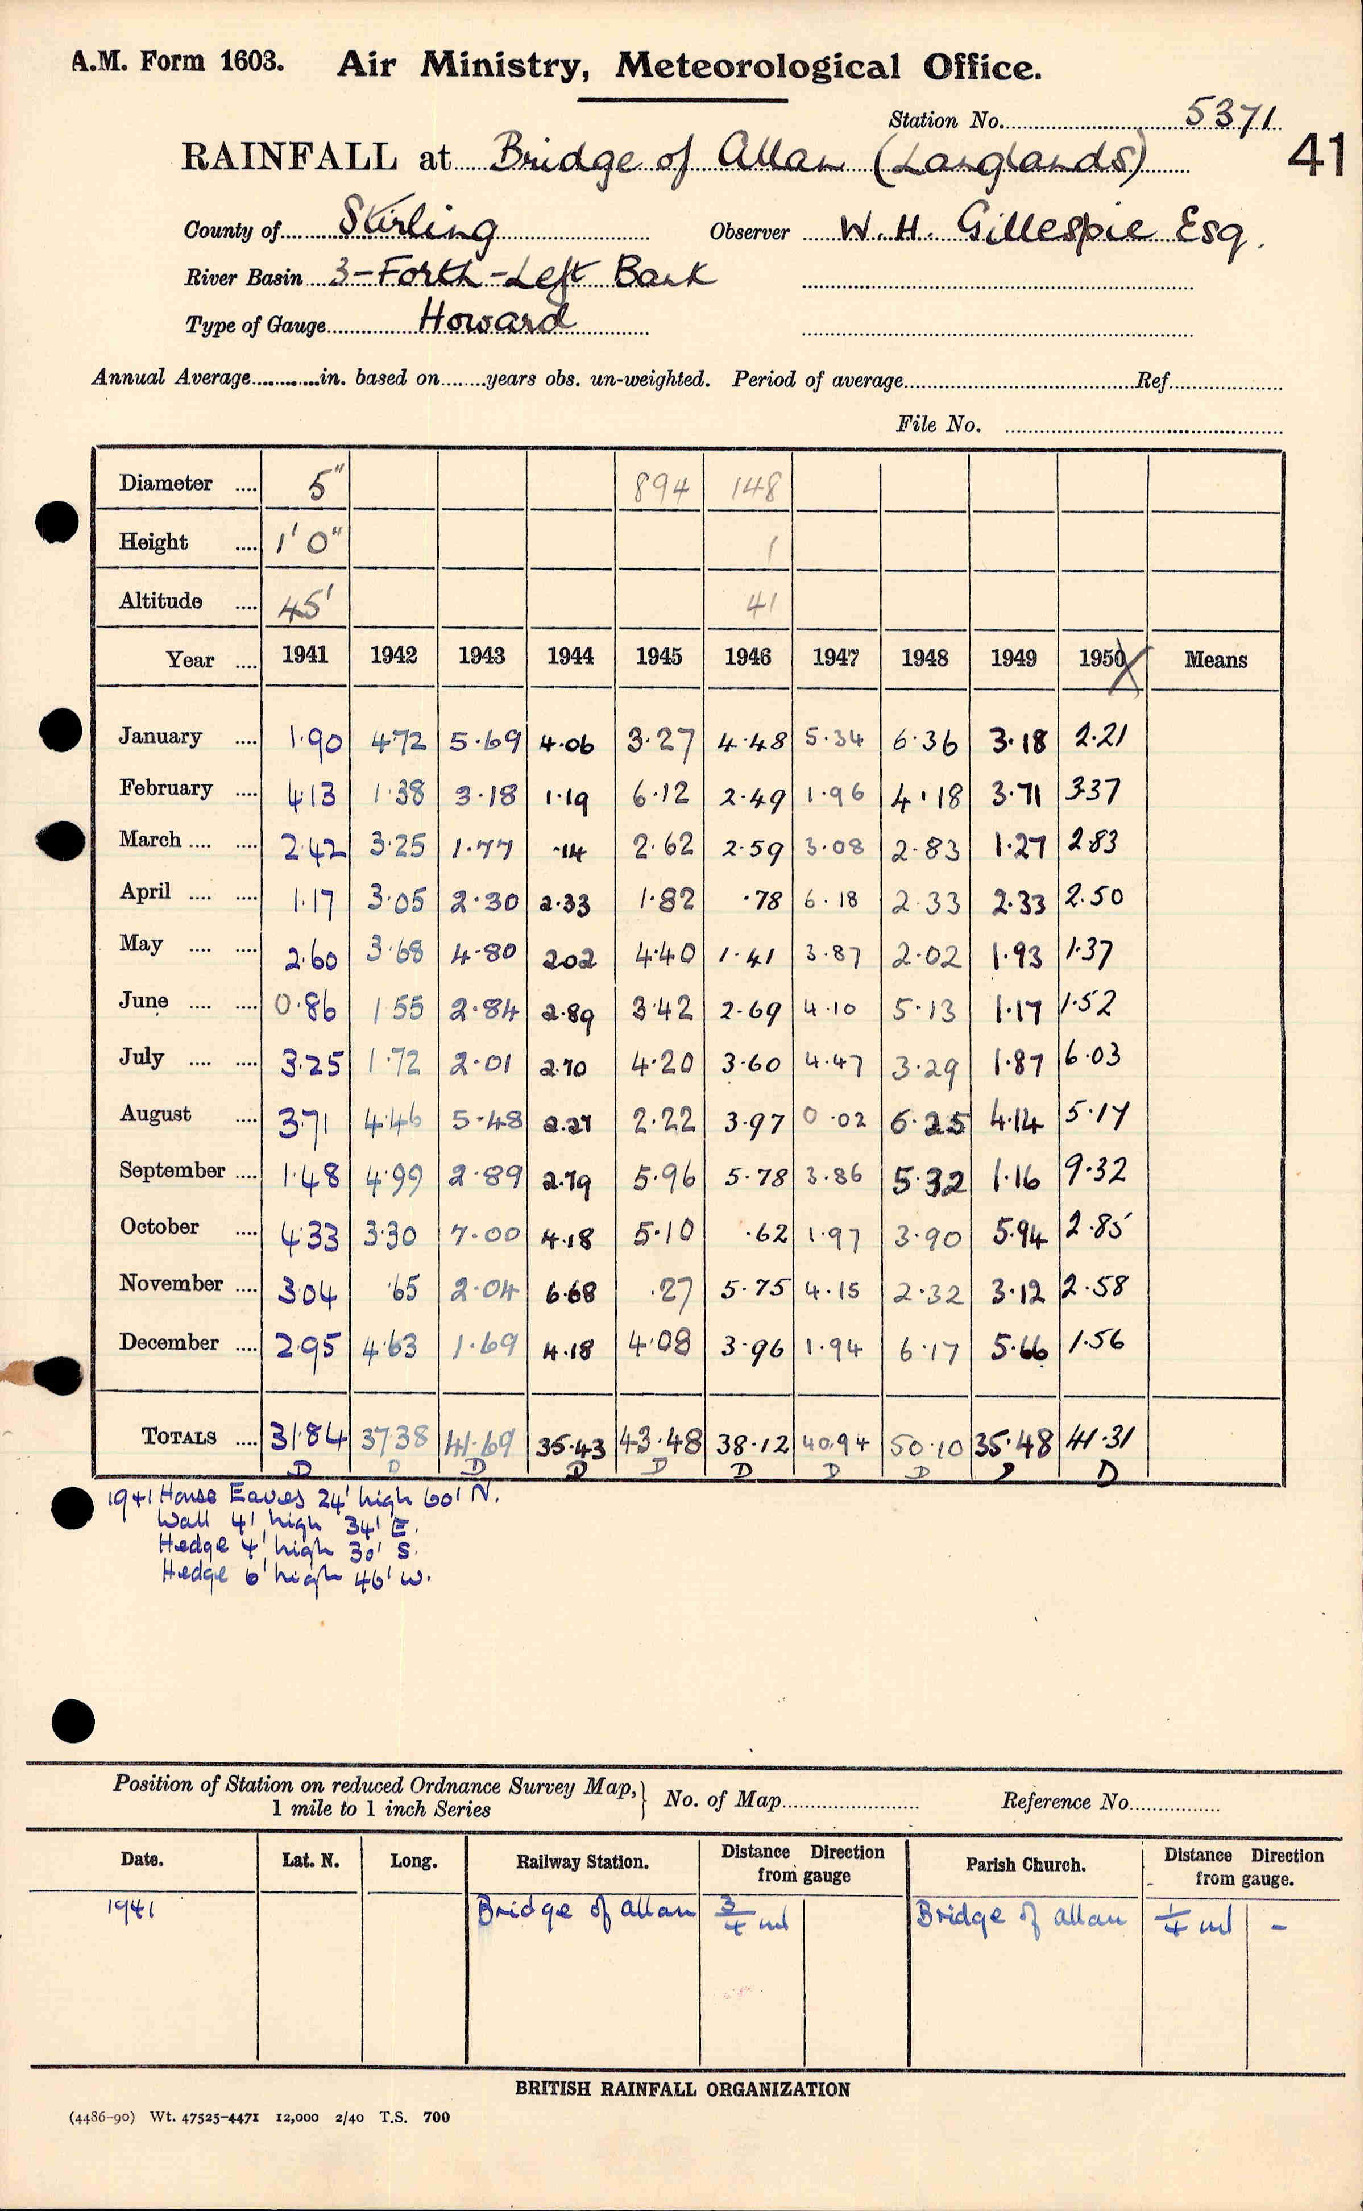 A.M. Form 1603. Air Ministry, Meteorological Office.
Station No. 5371
41
RAINFALL at Bridge of Allan (Langlands)
County of Stirling Observer W. H. Gillespie Esq.
River Basin 3-Forth-Left Bank
Type of Gauge Howard
Annual Average in. based on years obs. un-weighted. Period of average Ref
File No.
Diameter 5" 894 148
Height 1' 0" 1
Altitude 45' 41
Year 1941 1942 1943 1944 1945 1946 1947 1948 1949 1950 Means
January 1.90 4.72 5.69 4.06 3.27 4.48 5.34 6.36 3.18 2.21
February 4.13 1.38 3.18 1.19 6.12 2.49 1.96 4.18 3.71 3.37
March 2.42 3.25 1.77 .14 2.62 2.59 3.08 2.83 1.27 2.83
April 1.17 3.05 2.30 2.33 1.82 .78 6.18 2.33 2.33 2.50
May 2.60 3.68 4.80 2.02 4.40 1.41 3.87 2.02 1.93 1.37
June 0.86 1.55 2.84 2.89 3.42 2.69 4.10 5.13 1.17 1.52
July 3.25 1.72 2.01 2.70 4.20 3.60 4.47 3.29 1.87 6.03
August 3.71 4.46 5.48 2.27 2.22 3.97 0.02 6.25 4.14 5.17
September 1.48 4.99 2.89 2.79 5.96 5.78 3.86 5.32 1.16 9.32
October 4.33 3.30 7.00 4.18 5.10 .62 1.97 3.90 5.94 2.85
November 3.04 .65 2.04 6.68 .27 5.75 4.15 2.32 3.12 2.58
December 2.95 4.63 1.69 4.18 4.08 3.96 1.94 6.17 5.66 1.56
TOTALS 31.84 37.38 41.69 35.43 43.48 38.12 40.94 50.10 35.48 41.31
D D D D D D D D D D
1941 House Eaves 24' high 60' N.
Wall 4' high 34' E.
Hedge 4' high 30' S.
Hedge 6' high 46' W.
Position of Station on reduced Ordnance Survey Map, 1 mile to 1 inch Series } No. of Map Reference No.
Date. Lat. N. Long. Railway Station. Distance Direction from gauge Parish Church. Distance Direction from gauge.
1941 Bridge of Allan 3/4 ml Bridge of Allan 1/4 ml -
BRITISH RAINFALL ORGANIZATION
(4486-90) Wt. 47525-4471 12,000 2/40 T.S. 700